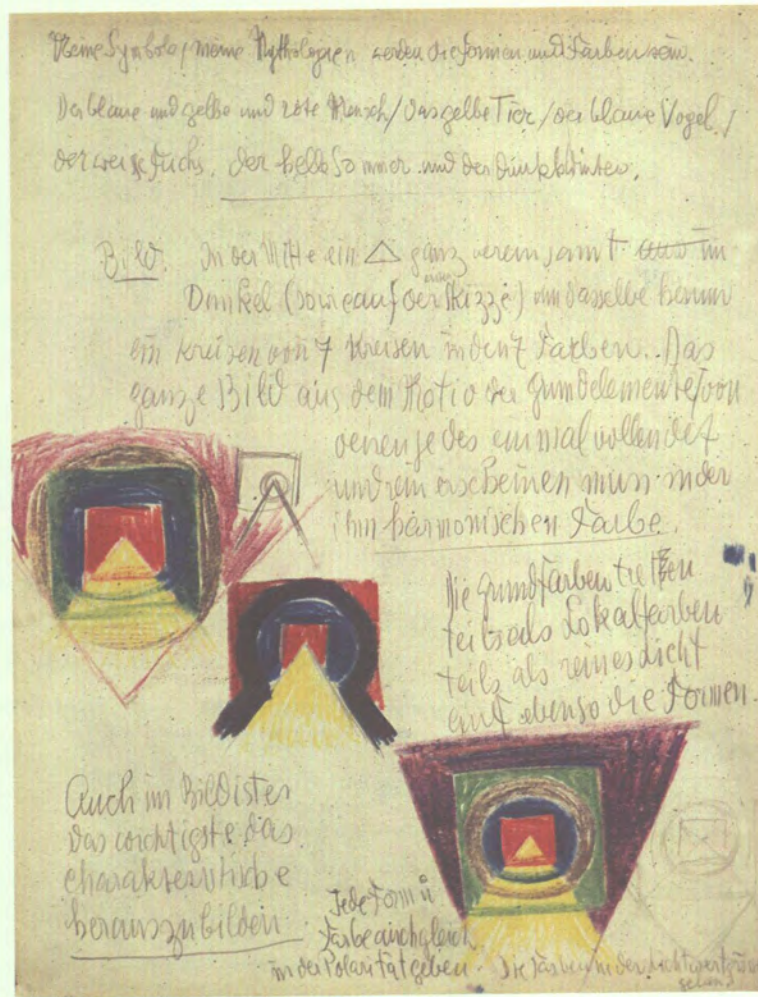 Meine Symbole / meine Mythologien werden die Formen und Farben sein.
Der blaue und gelbe und rote Mensch / das gelbe Tier / der blaue Vogel /
der weisse Fuchs. der helle Sommer und der dunkle Winter.
Bild. In der Mitte ein △ ganz vereinsamt im
Dunkel (sowie auf der ersten Skizze) um dasselbe herum
ein Kreisen von 7 Kreisen in den 7 Farben. Das
ganze Bild aus dem Motiv der Grundelemente / von
denen jedes einmal vollendet
und rein erscheinen muss in der
ihm harmonischen Farbe.
Die Grundfarben treten
teils als Lokalfarben
teils als reines Licht
auf ebenso die Formen.
Auch im Bild ist es
das wichtigste das
charakteristische
herauszubilden
Jede Form u
Farbe auch gleich
in der Polarität geben. Die Farben in der